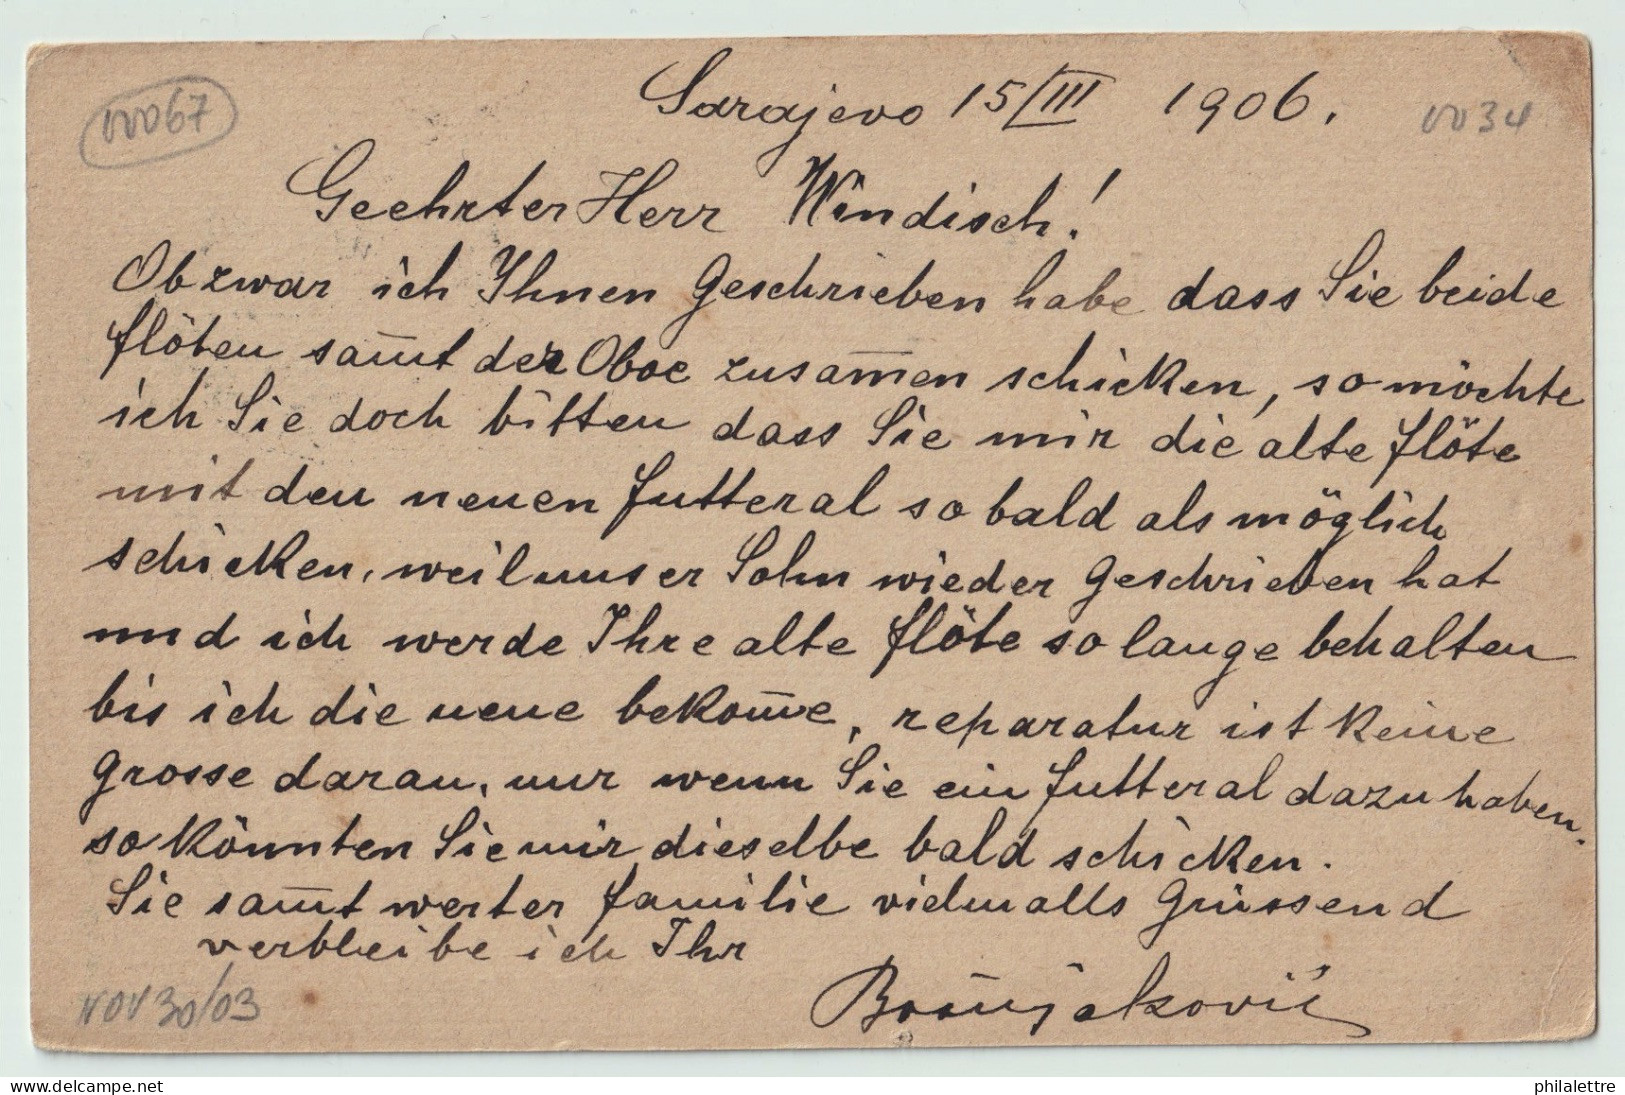 Sarajevo 15/III 1906.
Geehrter Herr Windisch!
Obzwar ich Ihnen Geschrieben habe dass Sie beide
flöten sam̅t der Oboe zusam̅en schicken, so möchte
ich Sie doch bitten dass Sie mir die alte flöte
mit den neuen futteral so bald als möglich
schicken, weil unser Sohn wieder Geschrieben hat
und ich werde Ihre alte flöte so lange behalten
bis ich die neue bekom̅e, reparatur ist keine
Grosse daran, nur wenn Sie ein futteral dazu haben.
so könnten Sie mir dieselbe bald schicken.
Sie sam̅t werter familie vielmalls Grüssend
verbleibe ich Ihr
NOV 30/03
delcampe.net
philalettre